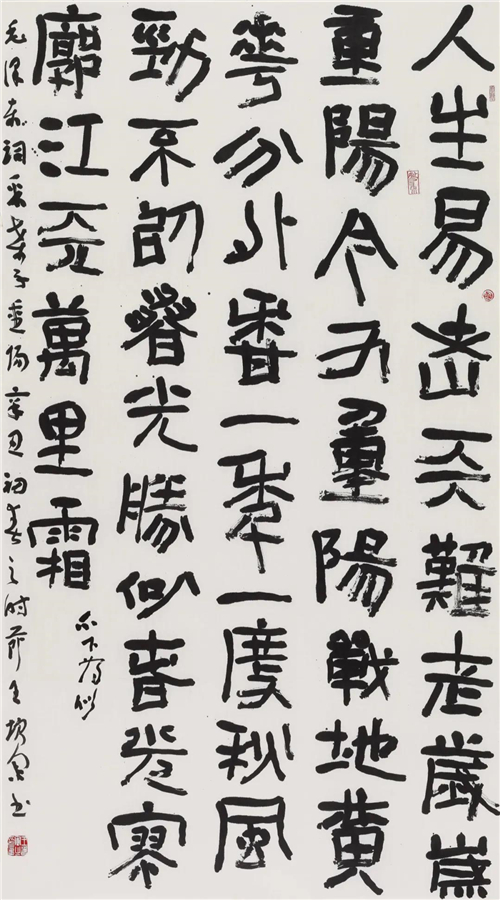 人生易老天難老歲歲
重陽今又重陽戰地黄
花分外香一年一度秋風
勁不似春光勝似春光寥
廓江天萬里霜
不下為似
毛澤東詞采桑子重陽辛丑初春之時節王書